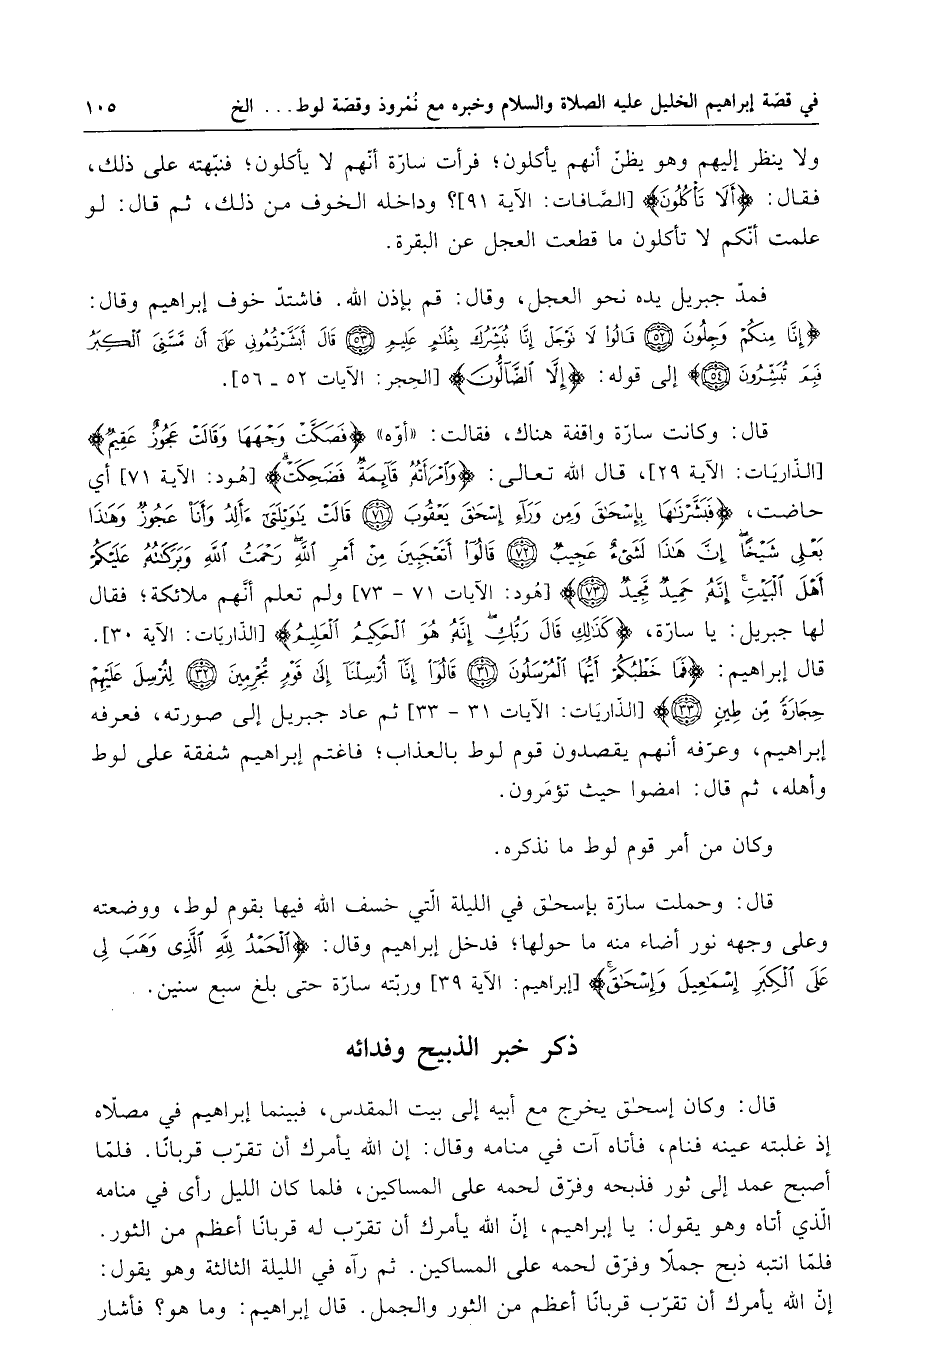 في قصّة إبراهيم الخليل عليه الصلاة والسلام وخبره مع نُمْروذ وقصّة لوط... الخ ١٠٥
ولا ينظر إليهم وهو يظنّ أنهم يأكلون؛ فرأت سارّة أنّهم لا يأكلون؛ فنبّهته على ذلك،
فقال: ﴿أَلَا تَأْكُلُونَ﴾ [الصَّافات: الآية ٩١]؟ وداخله الخوف من ذلك، ثم قال: لو
علمت أنّكم لا تأكلون ما قطعت العجل عن البقرة.
فمدّ جبريل يده نحو العجل، وقال: قم بإذن الله. فاشتدّ خوف إبراهيم وقال:
﴿إِنَّا مِنكُمْ وَجِلُونَ ﴿٥٢﴾ قَالُوا۟ لَا نَوْجَلْ إِنَّا نُبَشِّرُكَ بِغُلَٰمٍ عَلِيمٍ ﴿٥٣﴾ قَالَ أَبَشَّرْتُمُونِى عَلَىٰٓ أَن مَّسَّنِىَ ٱلْكِبَرُ
فَبِمَ تُبَشِّرُونَ ﴿٥٤﴾﴾ إلى قوله: ﴿إِلَّا ٱلضَّآلُّونَ﴾ [الحِجر: الآيات ٥٢ ـ ٥٦].
قال: وكانت سارّة واقفة هناك، فقالت: «أوّه» ﴿فَصَكَّتْ وَجْهَهَا وَقَالَتْ عَجُوزٌ عَقِيمٌ﴾
[الذّاريَات: الآية ٢٩]، قال الله تعالى: ﴿وَٱمْرَأَتُهُۥ قَآئِمَةٌ فَضَحِكَتْ﴾ [هُود: الآية ٧١] أي
حاضت، ﴿فَبَشَّرْنَٰهَا بِإِسْحَٰقَ وَمِن وَرَآءِ إِسْحَٰقَ يَعْقُوبَ ﴿٧١﴾ قَالَتْ يَٰوَيْلَتَىٰٓ ءَأَلِدُ وَأَنَا۠ عَجُوزٌ وَهَٰذَا
بَعْلِى شَيْخًا إِنَّ هَٰذَا لَشَىْءٌ عَجِيبٌ ﴿٧٢﴾ قَالُوٓا۟ أَتَعْجَبِينَ مِنْ أَمْرِ ٱللَّهِ رَحْمَتُ ٱللَّهِ وَبَرَكَٰتُهُۥ عَلَيْكُمْ
أَهْلَ ٱلْبَيْتِ إِنَّهُۥ حَمِيدٌ مَّجِيدٌ ﴿٧٣﴾﴾ [هُود: الآيات ٧١ - ٧٣] ولم تعلم أنَّهم ملائكة؛ فقال
لها جبريل: يا سارّة، ﴿كَذَٰلِكِ قَالَ رَبُّكِ إِنَّهُۥ هُوَ ٱلْحَكِيمُ ٱلْعَلِيمُ﴾ [الذّاريَات: الآية ٣٠].
قال إبراهيم: ﴿فَمَا خَطْبُكُمْ أَيُّهَا ٱلْمُرْسَلُونَ ﴿٣١﴾ قَالُوٓا۟ إِنَّآ أُرْسِلْنَآ إِلَىٰ قَوْمٍ مُّجْرِمِينَ ﴿٣٢﴾ لِنُرْسِلَ عَلَيْهِمْ
حِجَارَةً مِّن طِينٍ ﴿٣٣﴾﴾ [الذّاريَات: الآيات ٣١ - ٣٣] ثم عاد جبريل إلى صورته، فعرفه
إبراهيم، وعرّفه أنهم يقصدون قوم لوط بالعذاب؛ فاغتم إبراهيم شفقة على لوط
وأهله، ثم قال: امضوا حيث تؤمَرون.
وكان من أمر قوم لوط ما نذكره.
قال: وحملت سارّة بإسحـٰق في الليلة الّتي خسف الله فيها بقوم لوط، ووضعته
وعلى وجهه نور أضاء منه ما حولها؛ فدخل إبراهيم وقال: ﴿ٱلْحَمْدُ لِلَّهِ ٱلَّذِى وَهَبَ لِى
عَلَى ٱلْكِبَرِ إِسْمَٰعِيلَ وَإِسْحَٰقَ﴾ [إبراهيم: الآية ٣٩] وربّته سارّة حتى بلغ سبع سنين.
ذكر خبر الذبيح وفدائه
قال: وكان إسحـٰق يخرج مع أبيه إلى بيت المقدس، فبينما إبراهيم في مصلّاه
إذ غلبته عينه فنام، فأتاه آت في منامه وقال: إن الله يأمرك أن تقرّب قربانًا. فلمّا
أصبح عمد إلى ثور فذبحه وفرّق لحمه على المساكين، فلما كان الليل رأى في منامه
الّذي أتاه وهو يقول: يا إبراهيم، إنّ الله يأمرك أن تقرّب له قربانًا أعظم من الثور.
فلمّا انتبه ذبح جملًا وفرّق لحمه على المساكين. ثم رآه في الليلة الثالثة وهو يقول:
إنّ الله يأمرك أن تقرّب قربانًا أعظم من الثور والجمل. قال إبراهيم: وما هو؟ فأشار